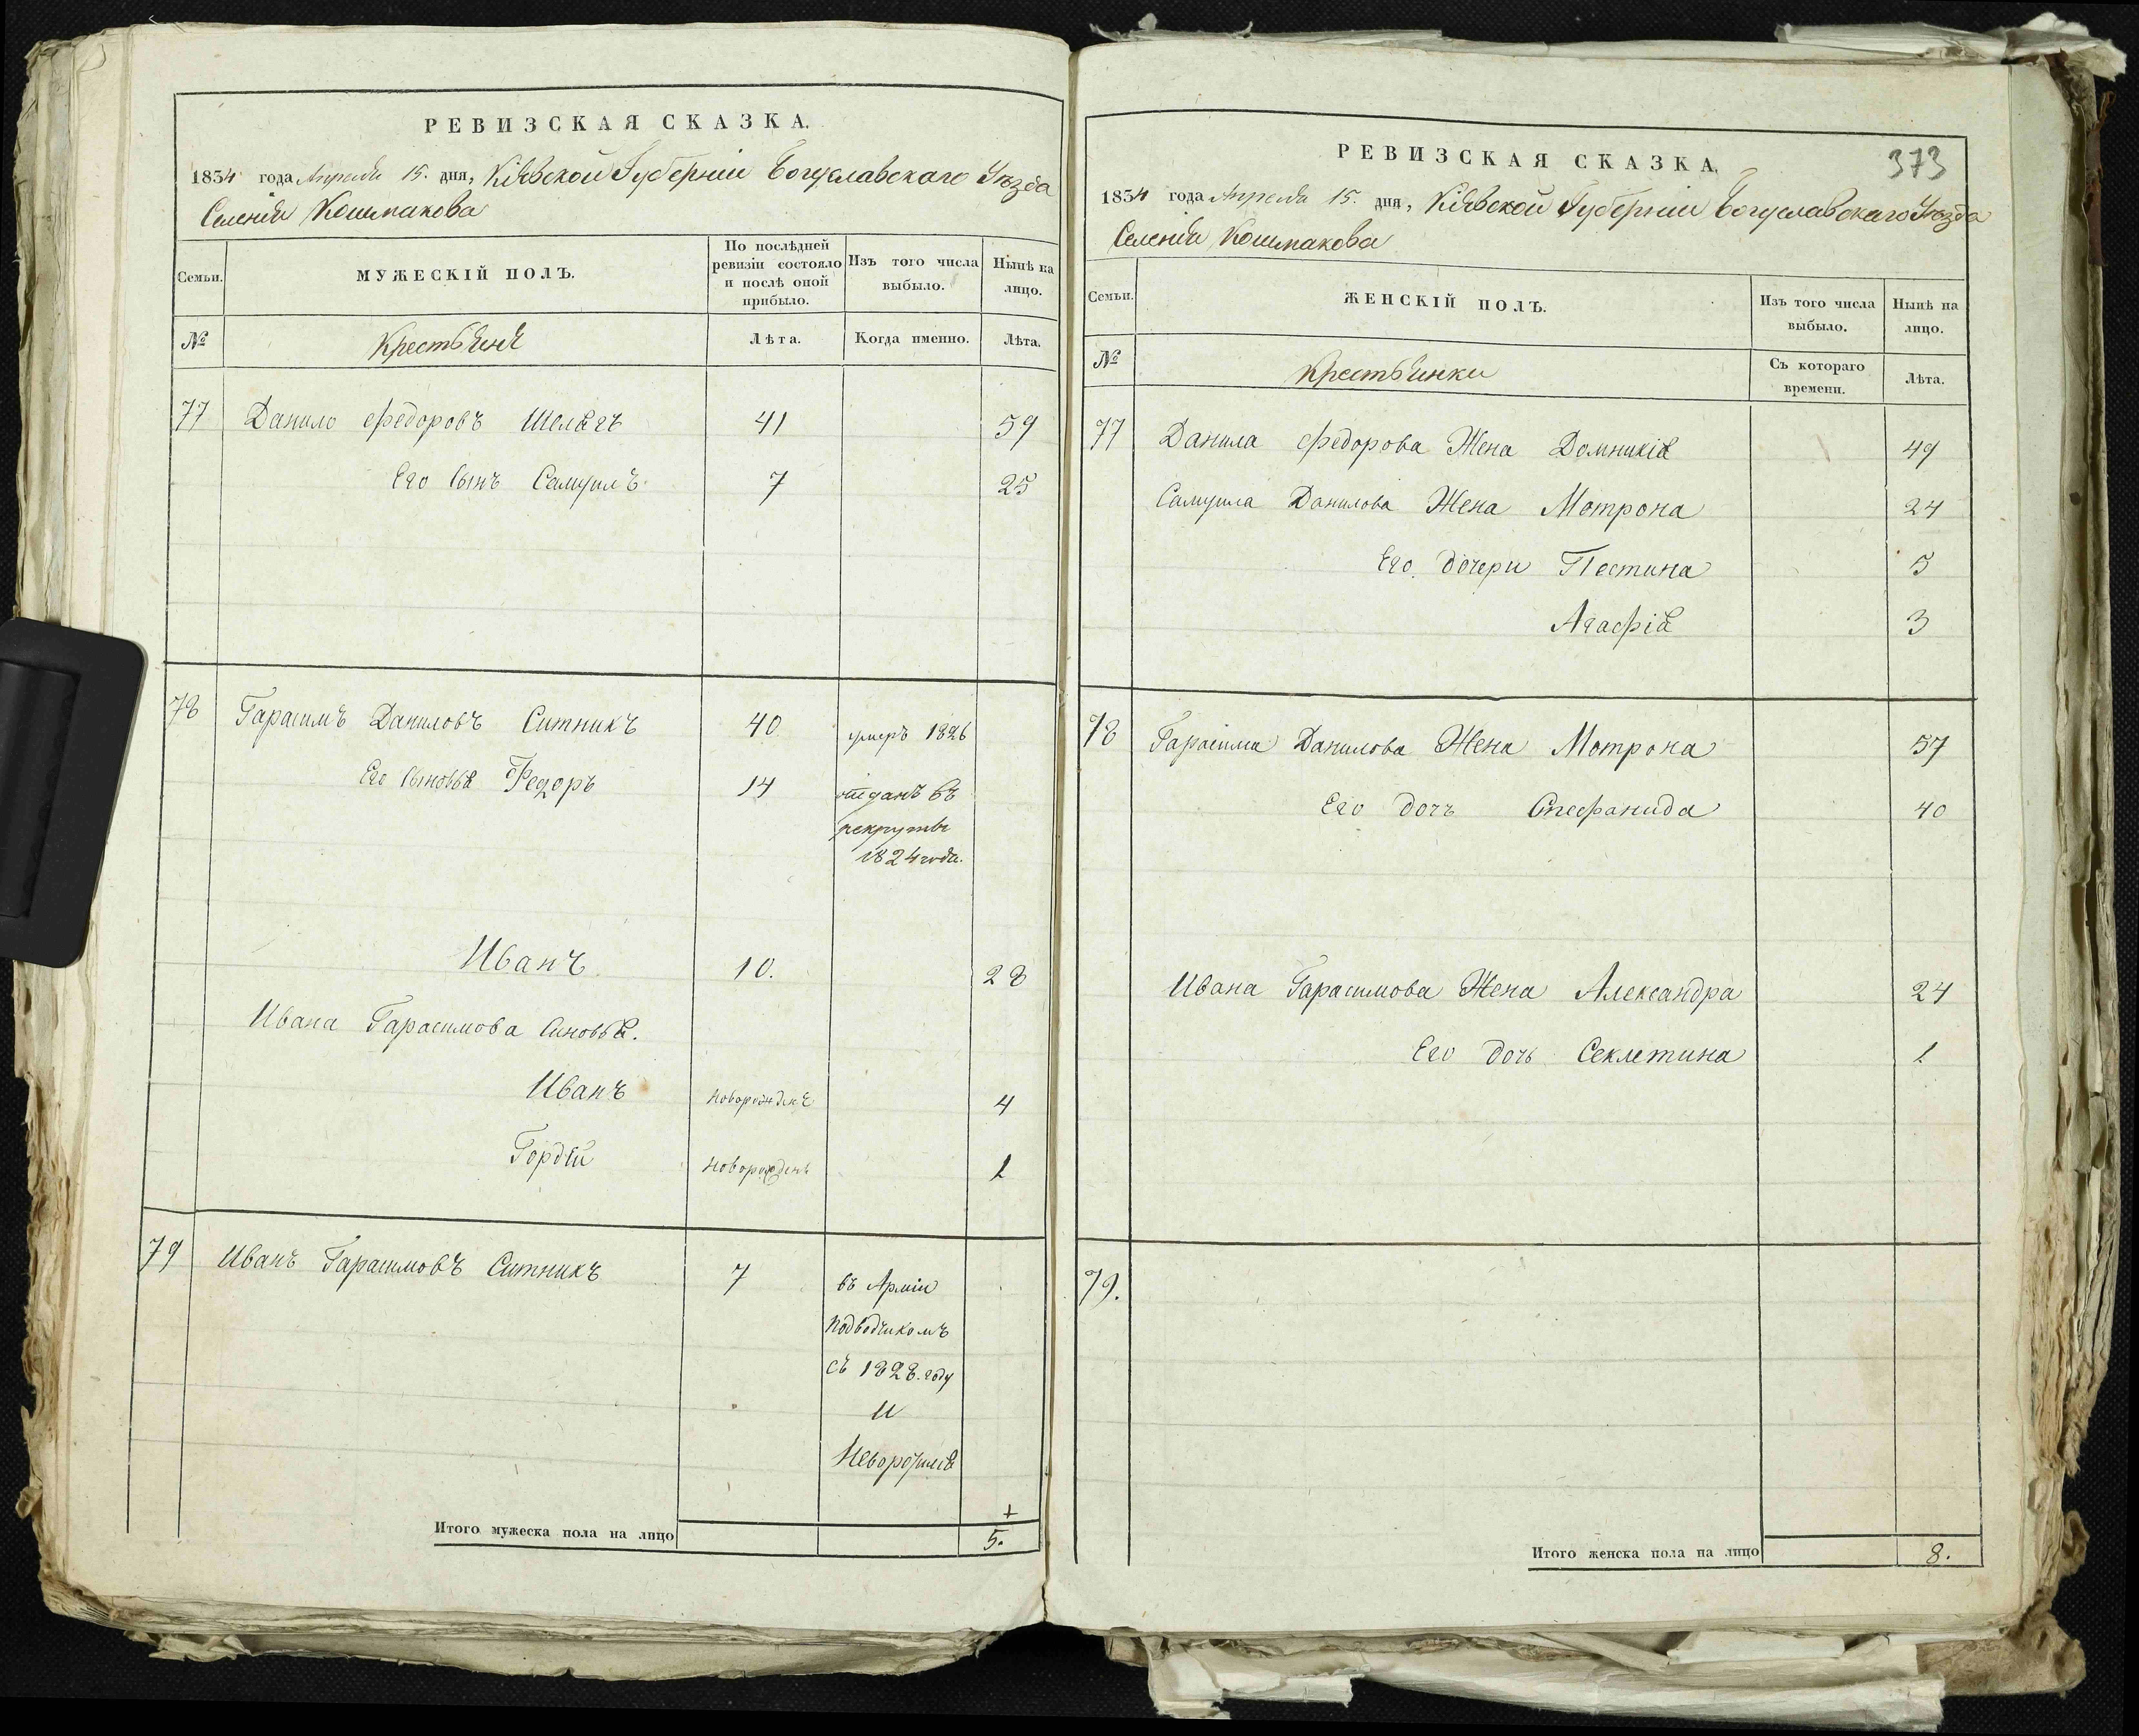 РЕВИЗСКАЯ СКАЗКА.
1834 года Апреля 15. дня, Кіевской Губерніи Богуславскаго Уѣзда
Селенія Кошмакова
Семьи.
МУЖЕСКІЙ ПОЛЪ.
По послѣдней ревизіи состояло и послѣ оной прибыло.
Изъ того числа выбыло.
Нынѣ на лицо.
№
Крестьянѣ
Лѣта.
Когда именно.
Лѣта.
77 Данило Федоровъ Шелягъ 41 59
Его Сынъ Самуилъ 7 25
78 Гарасимъ Даниловъ Ситникъ 40 умеръ 1826
Его Сыновья Федоръ 14 отданъ въ
рекруты
1824 года.
Иванъ 10. 28
Ивана Гарасимова Синовья.
Иванъ Новорожденъ 4
Гордій Новорожденъ 1
79 Иванъ Гарасимовъ Ситникъ 7 въ Арміи
Подводчикомъ
съ 1828. году
и
Итого мужеска пола на лицо 5.
РЕВИЗСКАЯ СКАЗКА.
373
1834 года Апреля 15. дня, Кіевской Губерніи Богуславскаго Уѣзда
Селенія Кошмакова
Семьи.
ЖЕНСКІЙ ПОЛЪ.
Изъ того числа выбыло.
Нынѣ на лицо.
№
Крестьянки
Съ котораго времени.
Лѣта.
77 Данила Федорова Жена Домникія 49
Самуила Данилова Жена Мотрона 24
Его дочери Пестина 5
Агафія 3
78 Гарасима Данилова Жена Мотрона 57
Его дочъ Стефанида 40
Ивана Гарасимова Жена Александра 24
Его дочь Секлетина 1
79.
Итого женска пола на лицо 8.